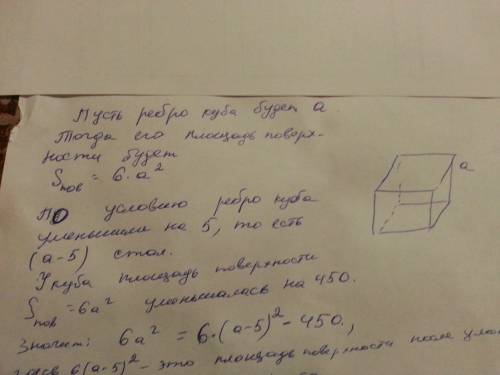 Пусть ребро куба будет a.
Тогда его площадь поверх-
ности будет
Sпов = 6·a²
По условию ребро куба
уменьшили на 5, то есть
(a-5) стал.
У куба площадь поверхности
Sпов = 6a² уменьшалась на 450.
Значит: 6a² = 6·(a-5)² - 450.,
6(a-5)² - это площадь поверхности после
a